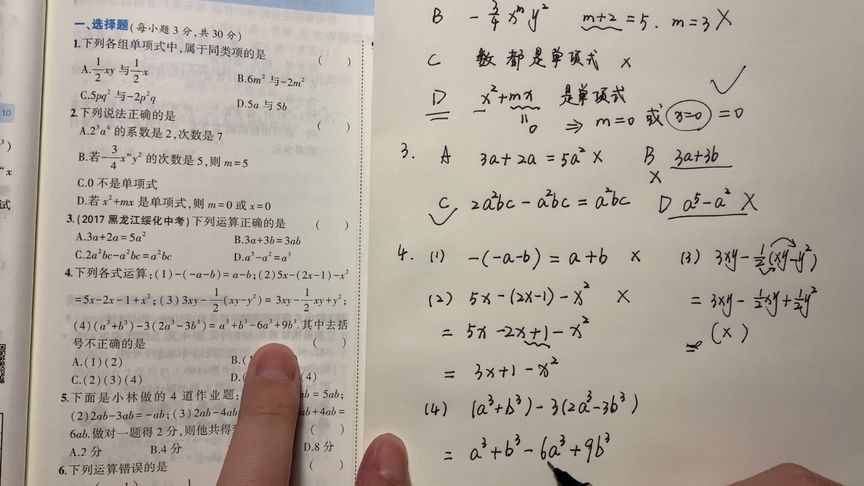 一、选择题(每小题3分,共30分)
1.下列各组单项式中,属于同类项的是 ( )
A.1/2xy 与1/2x B.6m²与-2m²
C.5pq²与-2p²q D.5a与5b
2.下列说法正确的是 ( )
A.2³a⁴的系数是2,次数是7
B.若-3/4xᵐy²的次数是5,则m=5
C.0不是单项式
D.若x²+mx是单项式,则m=0或x=0
3.(2017黑龙江绥化中考)下列运算正确的是 ( )
A.3a+2a=5a² B.3a+3b=3ab
C.2a²bc-a²bc=a²bc D.a⁵-a²=a³
4.下列各式运算:(1)-(-a-b)=a-b;(2)5x-(2x-1)-x²
=5x-2x-1+x²;(3)3xy-1/2(xy-y²)=3xy-1/2xy+y²;
(4)(a³+b³)-3(2a³-3b³)=a³+b³-6a³+9b³.其中去括
号不正确的是 ( )
A.(1)(2) B.(
C.(2)(3)(4) D.( (4)
5.下面是小林做的4道作业题: ab=5ab;
(2)2ab-3ab=-ab;(3)2ab-4ab ab+4ab=
6ab.做对一题得2分,则他共得 ( )
A.2分 B.4分 D.8分
6.下列运算错误的是 ( )
10
试
B -3/4xᵐy² m+2=5. m=3 X
C 数 都是单项式 x
D x²+mx 是单项式 ✓
0 ⇒ m=0 或 x=0 =0
3. A 3a+2a=5a² X B 3a+3b X
C ✓ 2a²bc-a²bc=a²bc D a⁵-a² X
4. (1) -(-a-b)=a+b x
(2) 5x-(2x-1)-x² X
=5x-2x+1-x²
=3x+1-x²
(3) 3xy-1/2(xy-y²)
=3xy-1/2xy+1/2y²
(x)
(4) (a³+b³)-3(2a³-3b³)
=a³+b³-6a³+9b³